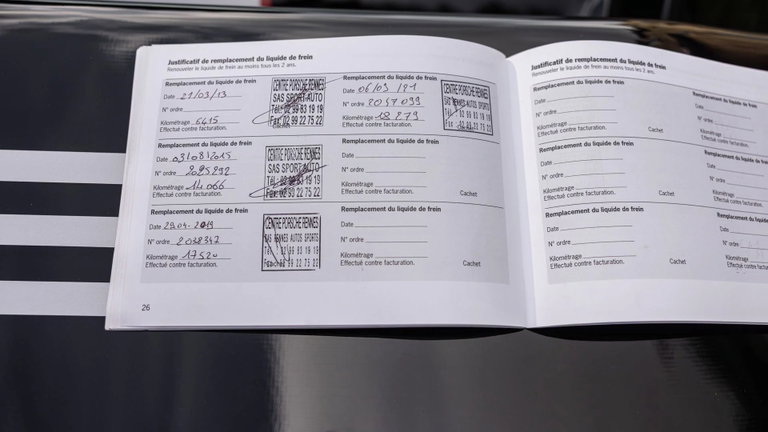 Justificatif de remplacement du liquide de frein
Renouveler le liquide de frein au moins tous les 2 ans.
Remplacement du liquide de frein
Date 21/03/13
N° ordre
Kilométrage 6415
Effectué contre facturation.
CENTRE PORSCHE RENNES
SAS SPORT AUTO
Tél. 02 99 83 19 19
Fax. 02 99 22 75 22
Cachet
Remplacement du liquide de frein
Date 06/09/21
N° ordre 2057099
Kilométrage 18279
Effectué contre facturation.
CENTRE PORSCHE RENNES
SAS RENNES AUTOS SPORTS
02 99 83 19 19
02 99 22 75 22
Remplacement du liquide de frein
Date 03/08/2015
N° ordre
Kilométrage 14066
Effectué contre facturation.
CENTRE PORSCHE RENNES
SAS SPORT AUTO
Tél. 02 99 83 19 19
Fax. 02 99 22 75 22
Remplacement du liquide de frein
Date
N° ordre
Kilométrage
Effectué contre facturation.
Cachet
Remplacement du liquide de frein
Date 29.04-2019
N° ordre 2038347
Kilométrage 17520
Effectué contre facturation.
CENTRE PORSCHE RENNES
SAS RENNES AUTOS SPORTS
02 99 83 19 19
02 99 22 75 22
Remplacement du liquide de frein
Date
N° ordre
Kilométrage
Effectué contre facturation.
Cachet
26
Justificatif de remplacement du liquide de frein
Renouveler le liquide de frein au moins tous les 2 ans.
Remplacement du liquide de frein
Date
N° ordre
Kilométrage
Effectué contre facturation.
Cachet
Remplacement du liquide de frein
Date
N° ordre
Kilométrage
Effectué contre facturation.
Remplacement du liquide de frein
Date
N° ordre
Kilométrage
Effectué contre facturation.
Cachet
Remplacement du liquide de
Date
N° ordre
Kilométrage
Effectué contre facturation.
Remplacement du liquide de frein
Date
N° ordre
Kilométrage
Effectué contre facturation.
Cachet
Remplacement du liquide de
Date
N° ordre
Kilométrage
Effectué contre facturation.